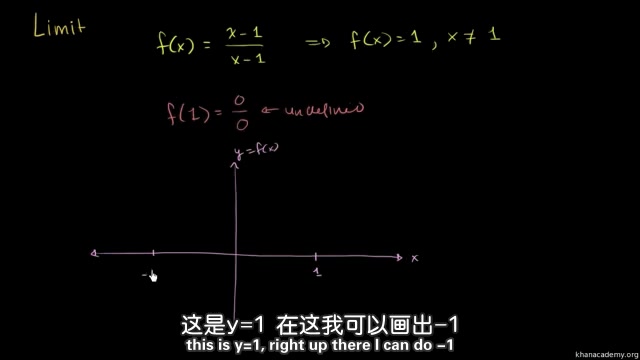 Limit
f(x) = x-1 / x-1 ⇒ f(x) = 1 , x ≠ 1
f(1) = 0 / 0 ← undefined
y = f(x)
x
-1
1
这是y=1 在这我可以画出-1
this is y=1, right up there I can do -1
khanacademy.org